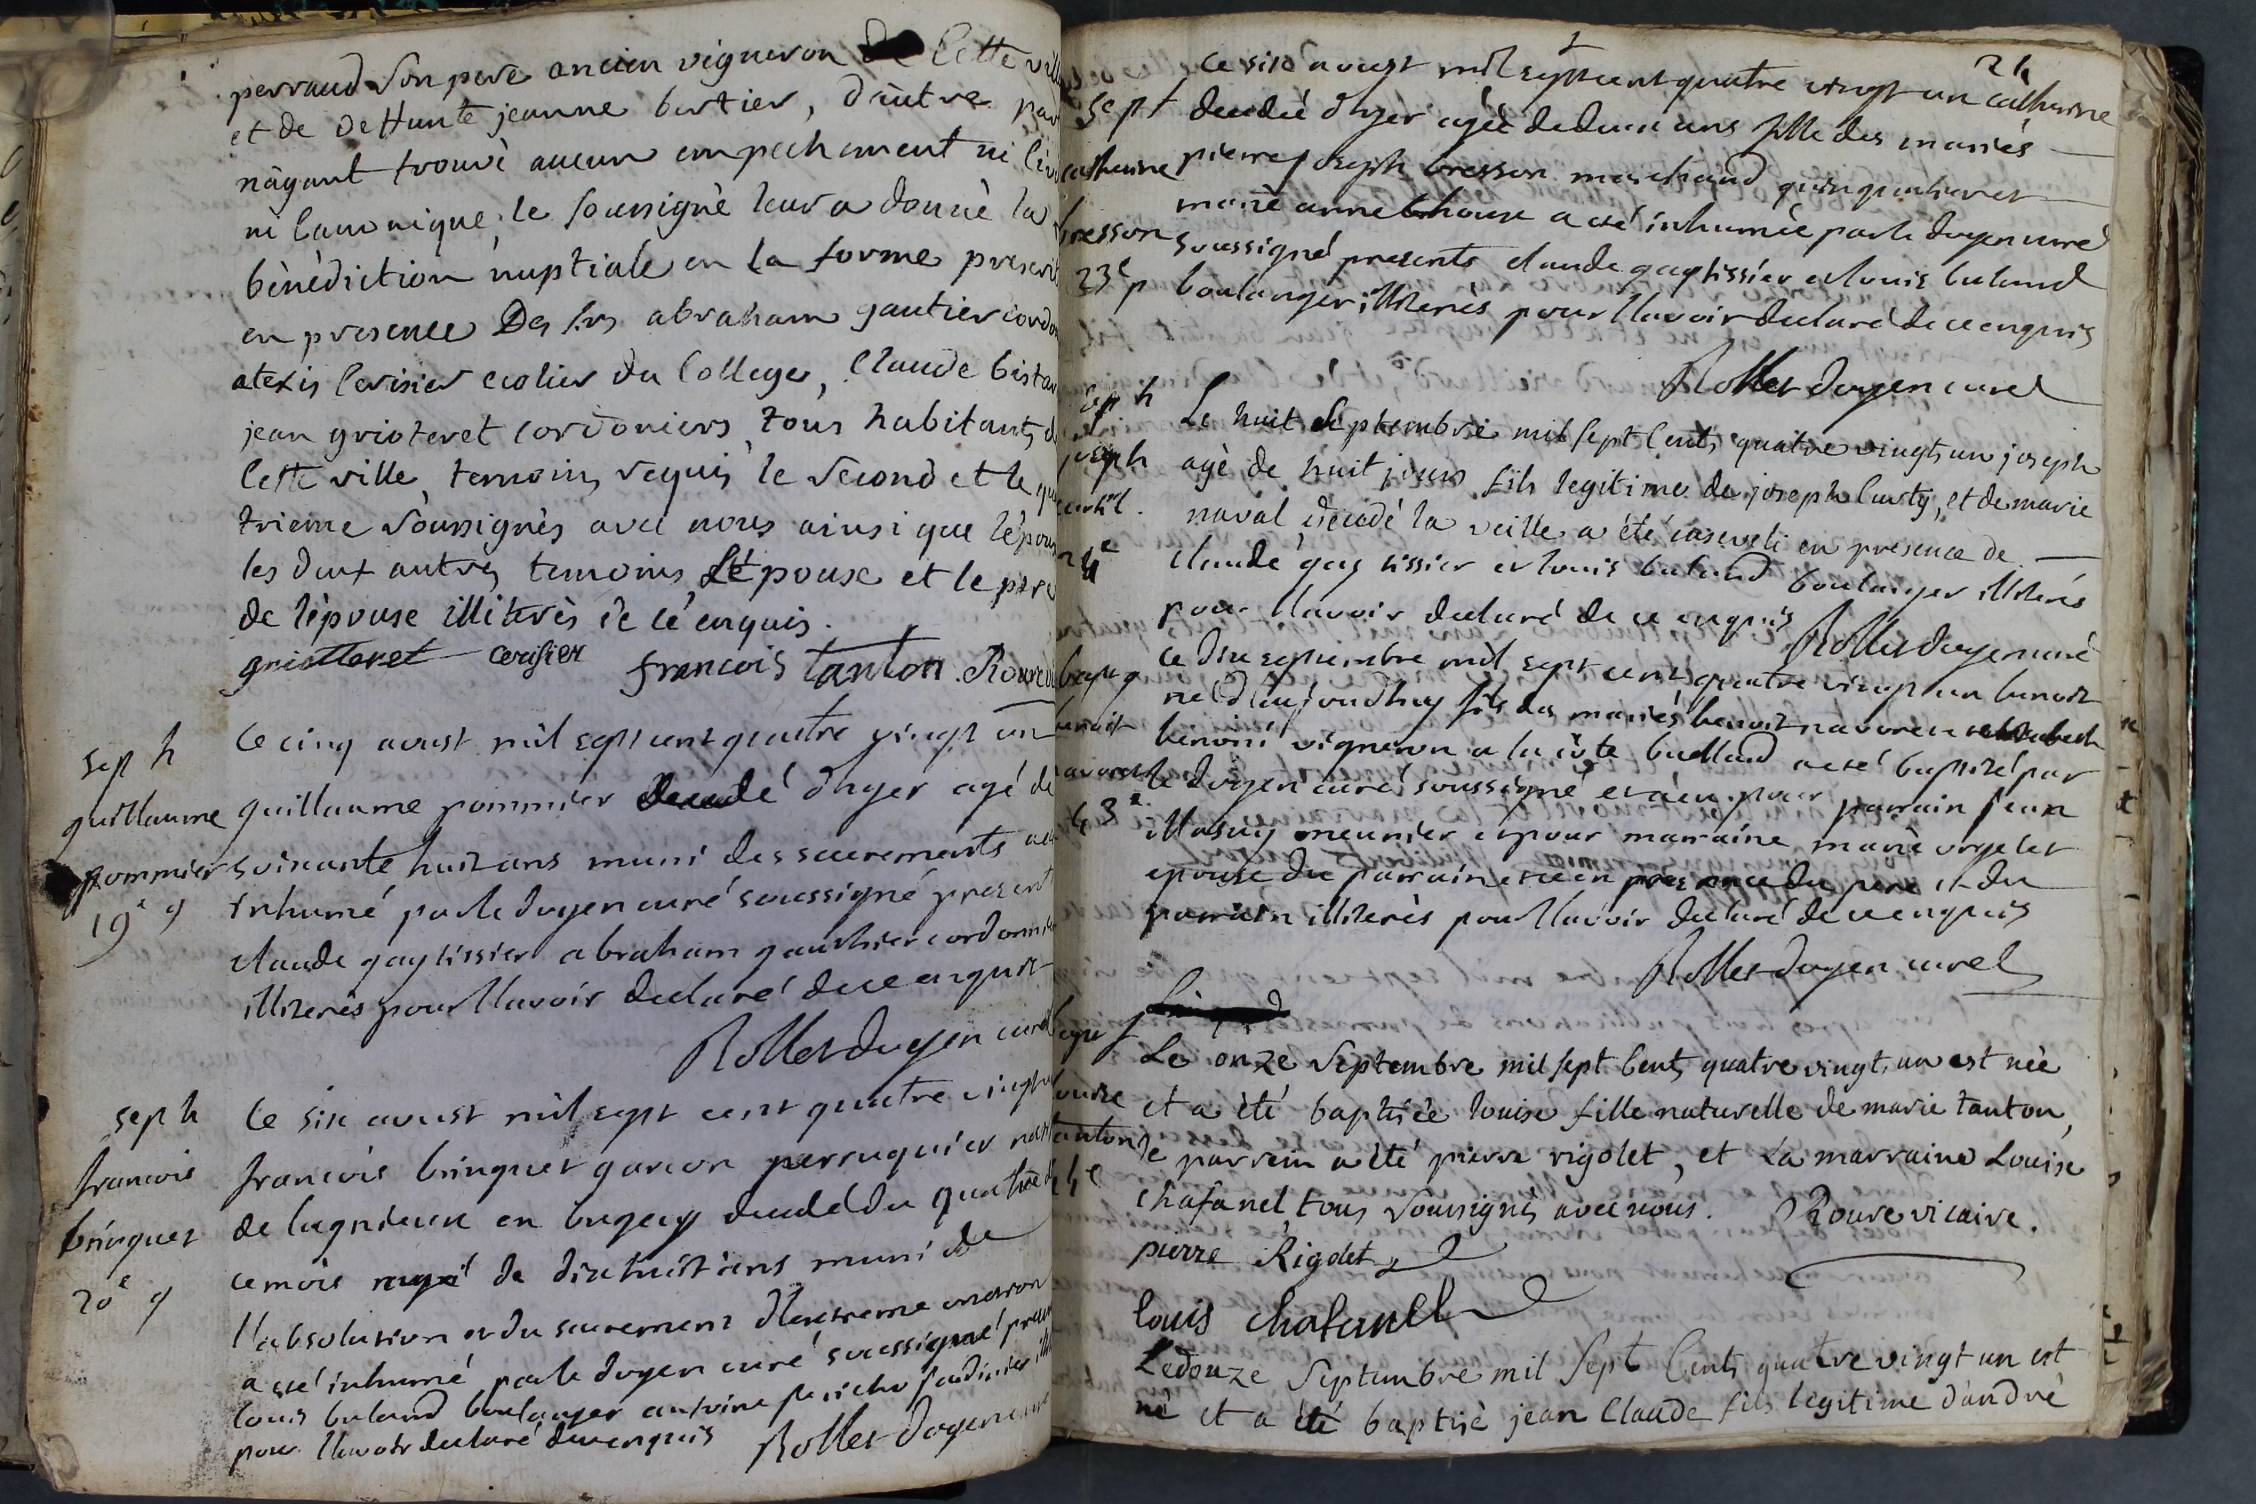 perraud son pere ancien vigneron de cette ville
et de deffunte jeanne bertier, d'autre par
n'ayant trouvé aucun empechement ni
ni canonique, le soussigné leur a donné la
bénédiction nuptiale en la forme prescrit
en presence des srs abraham gautier cordo
alexis cerisier ecolier du college, claude
jean grioteret cordoniers, tous habitants de
cette ville, temoins requis le second et le qua
trieme soussignés avec nous ainsi que l'epoux
les deux autres temoins, l'epouse et le pere
de l'épouse illiterés de ce enquis.
griotteret cerisier francois tanton Rouve
sep h
guillaume
pommier
19e
ce cinq aoust mil sept cent quatre vingt un
guillaume pommier decedé d'hyer agé de
soixante huit ans muni des sacrements a
inhumé par le doyen curé soussigné present
claude gay tissier abraham gauthier cordonnier
illiterés pour l'lavoir declaré de ce enquis
Rollet doyen curé
sep h
francois
bringuet
20e
ce six aoust mil sept cent quatre vingt
francois bringuet garcon perruquier nat
de lagnieux en bugey decedé du quatre
ce mois agé de dixhuit ans muni de
l'absolution et du sacrement d'lextreme onction
a eté inhumé par le doyen curé soussigné
louis buland boulanger antoine
pour l'lavoir declaré de ce enquis Rollet doyen curé
24
sept
catherine
bresson
23e
ce six aoust mil sept cent quatre vingt un catherine
decedée d'hyer agée de deux ans fille des mariés
pierre joseph bresson marchand quinqualier et
marie anne a eté inhumée par le doyen curé
soussigné presents claude gay tissier et louis buland
boulanger illiterés pour l'lavoir declaré de ce enquis
Rollet doyen curé
sep h
joseph
24e
Le huit septembre mil sept cents quatre vingts un joseph
agé de huit jours fils legitime de joseph curty, et de marie
naval, decedé la veille a été enseveli en presence de
claude gay tissier et louis buland boulanger illiterés
pour l'lavoir declaré de ce enquis
Rollet doyen curé
bapt g
benoit
navoret
43e
ce dix septembre mil sept cent quatre vingt un benoit
né d'laujourdhuy fils des mariés benoit navoret et
benoni vigneron a la cote a eté baptisé par
le doyen curé soussigné et a eu pour parrain jean
masuy meunier et pour marraine marie
epouse du parrain et ce en presence du pere et du
parrain illiterés pour l'lavoir declaré de ce enquis
Rollet doyen curé
bap f
louise
tanton
Le onze septembre mil sept cents quatre vingt un est née
et a été baptisée louise fille naturelle de marie tanton,
le parrein a été pierre rigolet, et la marraine Louise
chafanel, tous soussignés avec nous. Rouve vicaire.
pierre Rigolet
louis chafanel
Le douze septembre mil sept cents quatre vingt un est
né et a été baptisé jean claude fils legitime d'andré